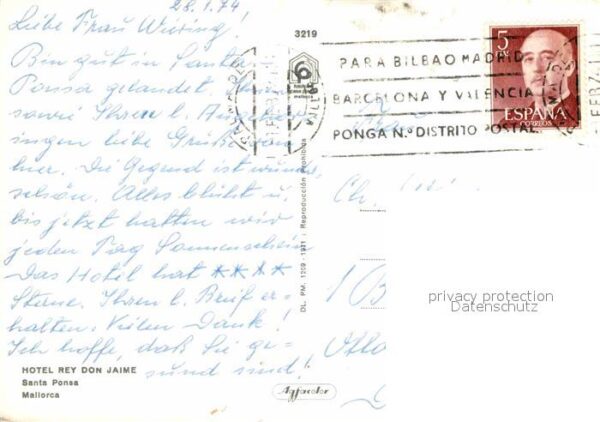 28.1.74
Liebe Frau Wiering!
Bin gut in Santa
Ponsa gelandet.
sowie Ihren l. Ange
ingen liebe Grüße
hier. Die Gegend ist wunder
schön. Alles blüht u.
bis jetzt hatten wir
jeden Tag Sonnenschein
Das Hotel hat ****
Sterne. Ihren l. Brief er-
halten. Vielen Dank!
Ich hoffe, daß Sie ge-
sund sind!
HOTEL REY DON JAIME
Santa Ponsa
Mallorca
3219
DL. PM. 1209 - 1971 : Reproducción Prohibida
Agfacolor
PARA BILBAO MADRID
BARCELONA Y VALENCIA
PONGA N.º DISTRITO POSTAL
5
PTS
ESPAÑA
CORREOS
privacy protection
Datenschutz